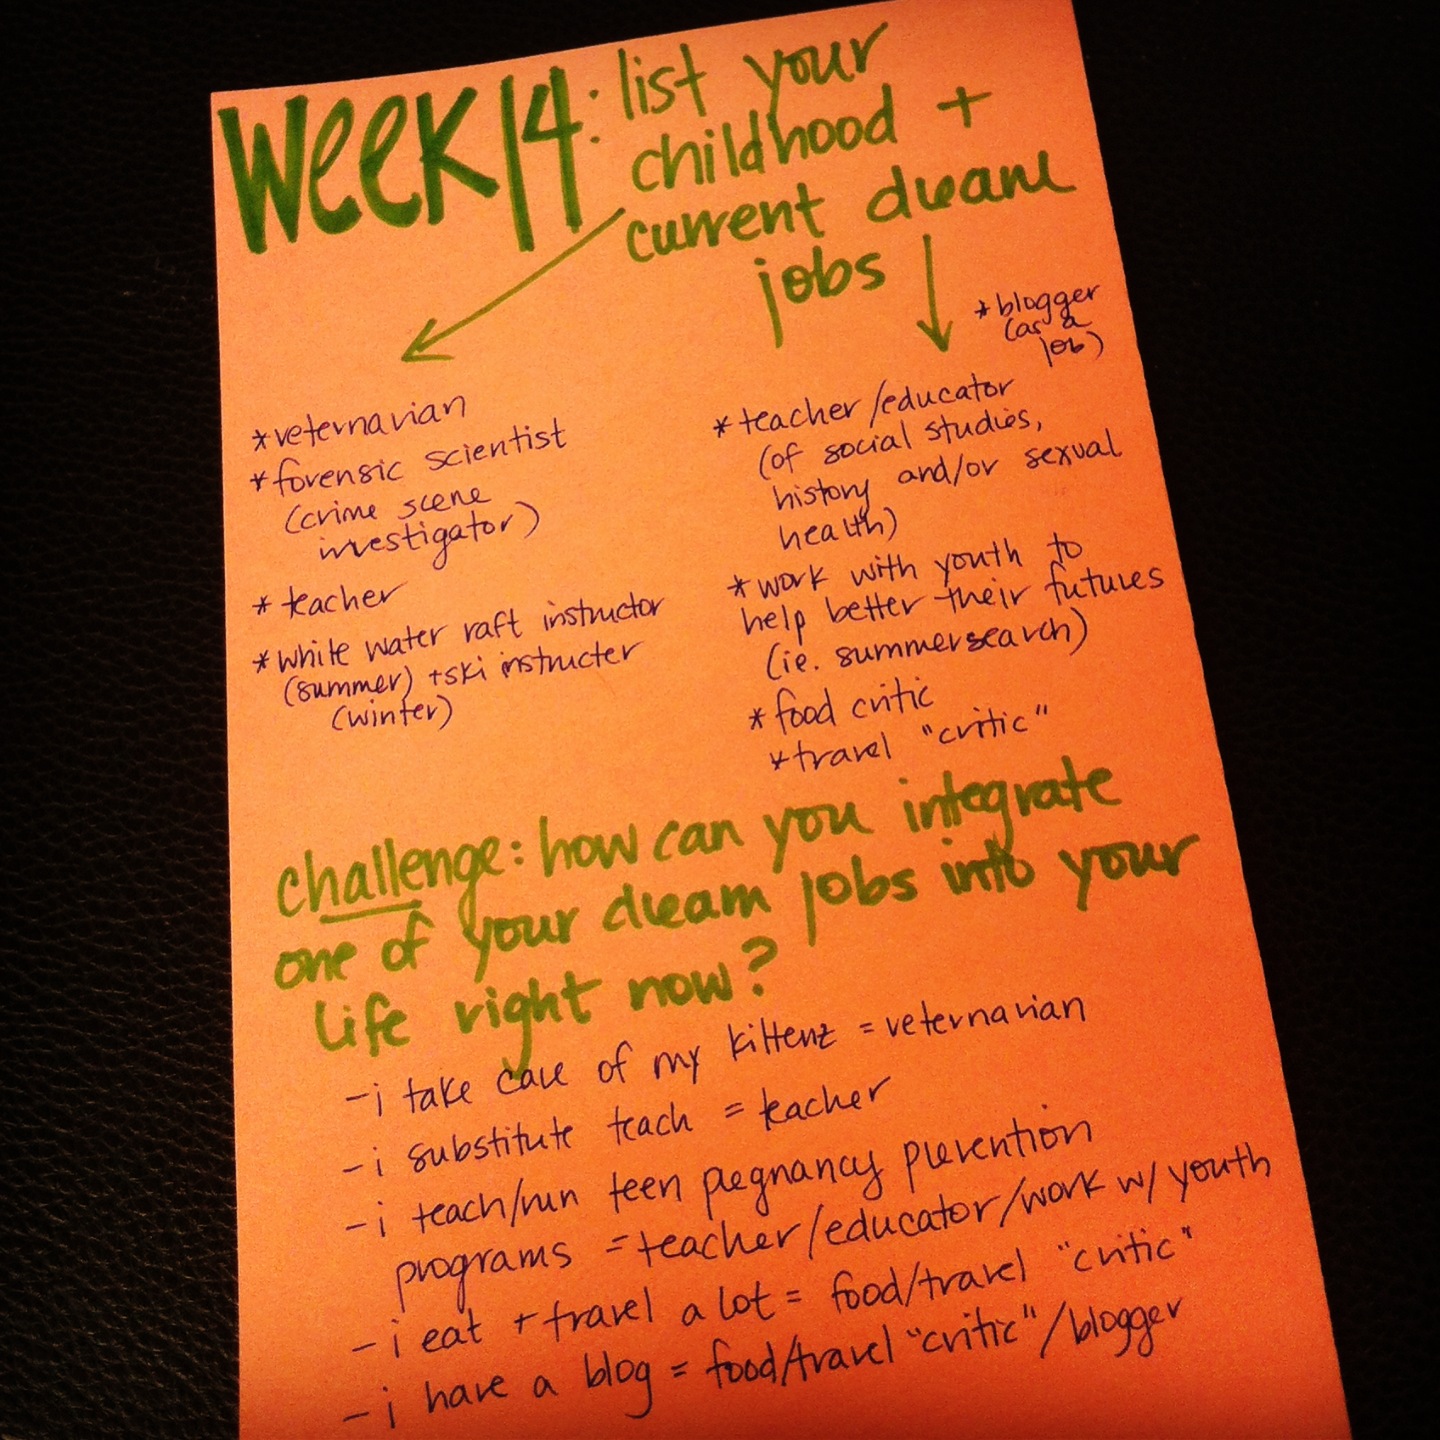 Week 14: list your
childhood +
current dream
jobs
*veternarian
*forensic scientist
(crime scene
investigator)
*teacher
*white water raft instructor
(summer) + ski instructer
(winter)
*blogger
(as a
job)
*teacher/educator
(of social studies,
history and/or sexual
health)
*work with youth to
help better their futures
(ie. summersearch)
*food critic
*travel "critic"
challenge: how can you integrate
one of your dream jobs into your
life right now?
-i take care of my kittenz = veternarian
-i substitute teach = teacher
-i teach/run teen pregnancy prevention
programs = teacher/educator/work w/ youth
-i eat + travel a lot = food/travel "critic"
-i have a blog = food/travel "critic"/blogger